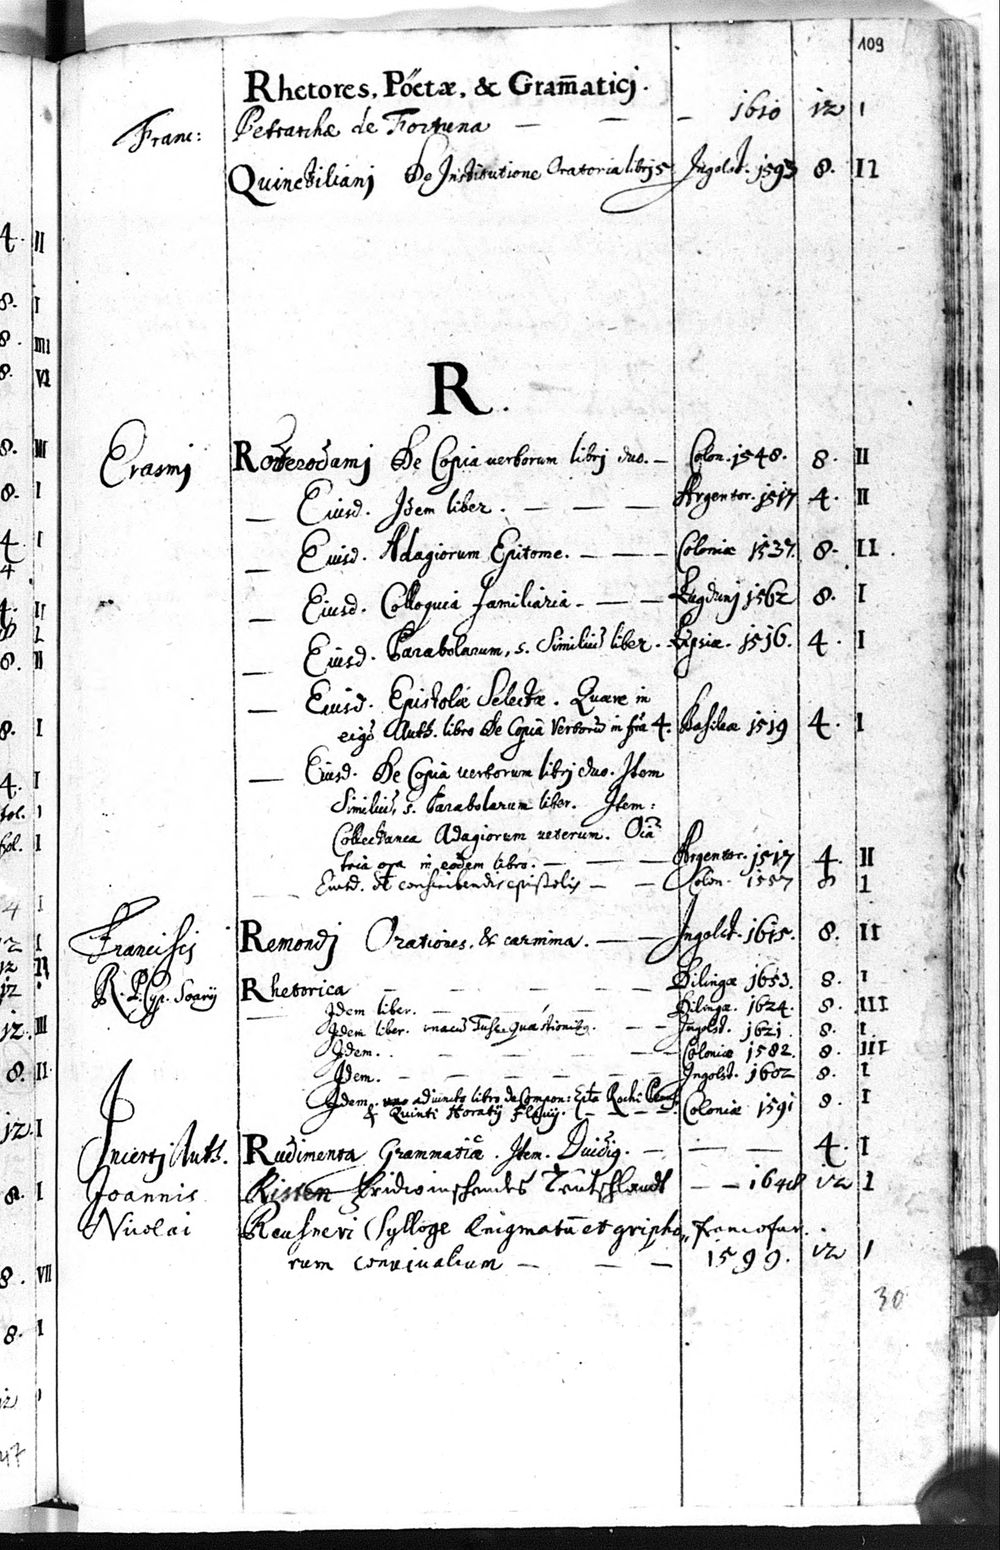 109
Rhetores, Poëtæ, & Gram̄aticj.
Franc: Petrarchæ de Fortuna — — — 1610 12 1
Quinctilianj De Institutione Oratoria librj 5 Ingolst. 1593 8. II
R.
Erasmj Roterodamj De Copia verborum librj duo. — Colon. 1548. 8. II
— Eiusd. Idem liber. — — — Argentor. 1517 4. II
— Eiusd. Adagiorum Epitome. — — — Coloniæ 1537. 8. II.
— Eiusd. Colloquia familiaria. — — Lugdunj 1562 8. I
— Eiusd. Parabolarum, s. Similiũ liber. Lipsiæ. 1516. 4. I
— Eiusd. Epistolæ Selectæ. Quære in
eiq3 Auth. libro De Copiâ Verborũ in fra 4. Basileæ 1519 4. I
— Eiusd. De Copia verborum librj duo. Item
Similiũ, s. Parabolarum liber. Item:
Collectanea Adagiorum veterum. Oĩa
tria opa in eodem libro. — — — Argentor. 1517 4. II
Eiusd. de conscribendis epistolis — — Colon. 1557 8 1
Franciscj Remondj Orationes, & carmina. — — Ingolst. 1615. 8. II
R. P. Cyp. Soarij Rhetorica — — — Dilingæ 1653. 8. I
Idem liber. — — — Dilingæ. 1624. 8. III
Idem liber. Tusc. quæstioniq. — — Ingolst. 1621. 8. I
Idem. — — — Coloniæ 1582. 8. III
Idem. — — — — Ingolst. 1602 8. I
Idem. adiuncto libro de Compon: Rochi
& Quinti Horatij Flaccij. — — Coloniæ 1591 8. I
Incertj Auth. Rudimenta Grammaticæ. Item. — — — 4. I
Joannis Risten Fridwinschendes Teutschlandt — — 1648 12 1
Nicolai Reusneri Sylloge Ænigmatũ et gripho„ francofur.
rum convivalium — — — 1599. 12 1
30